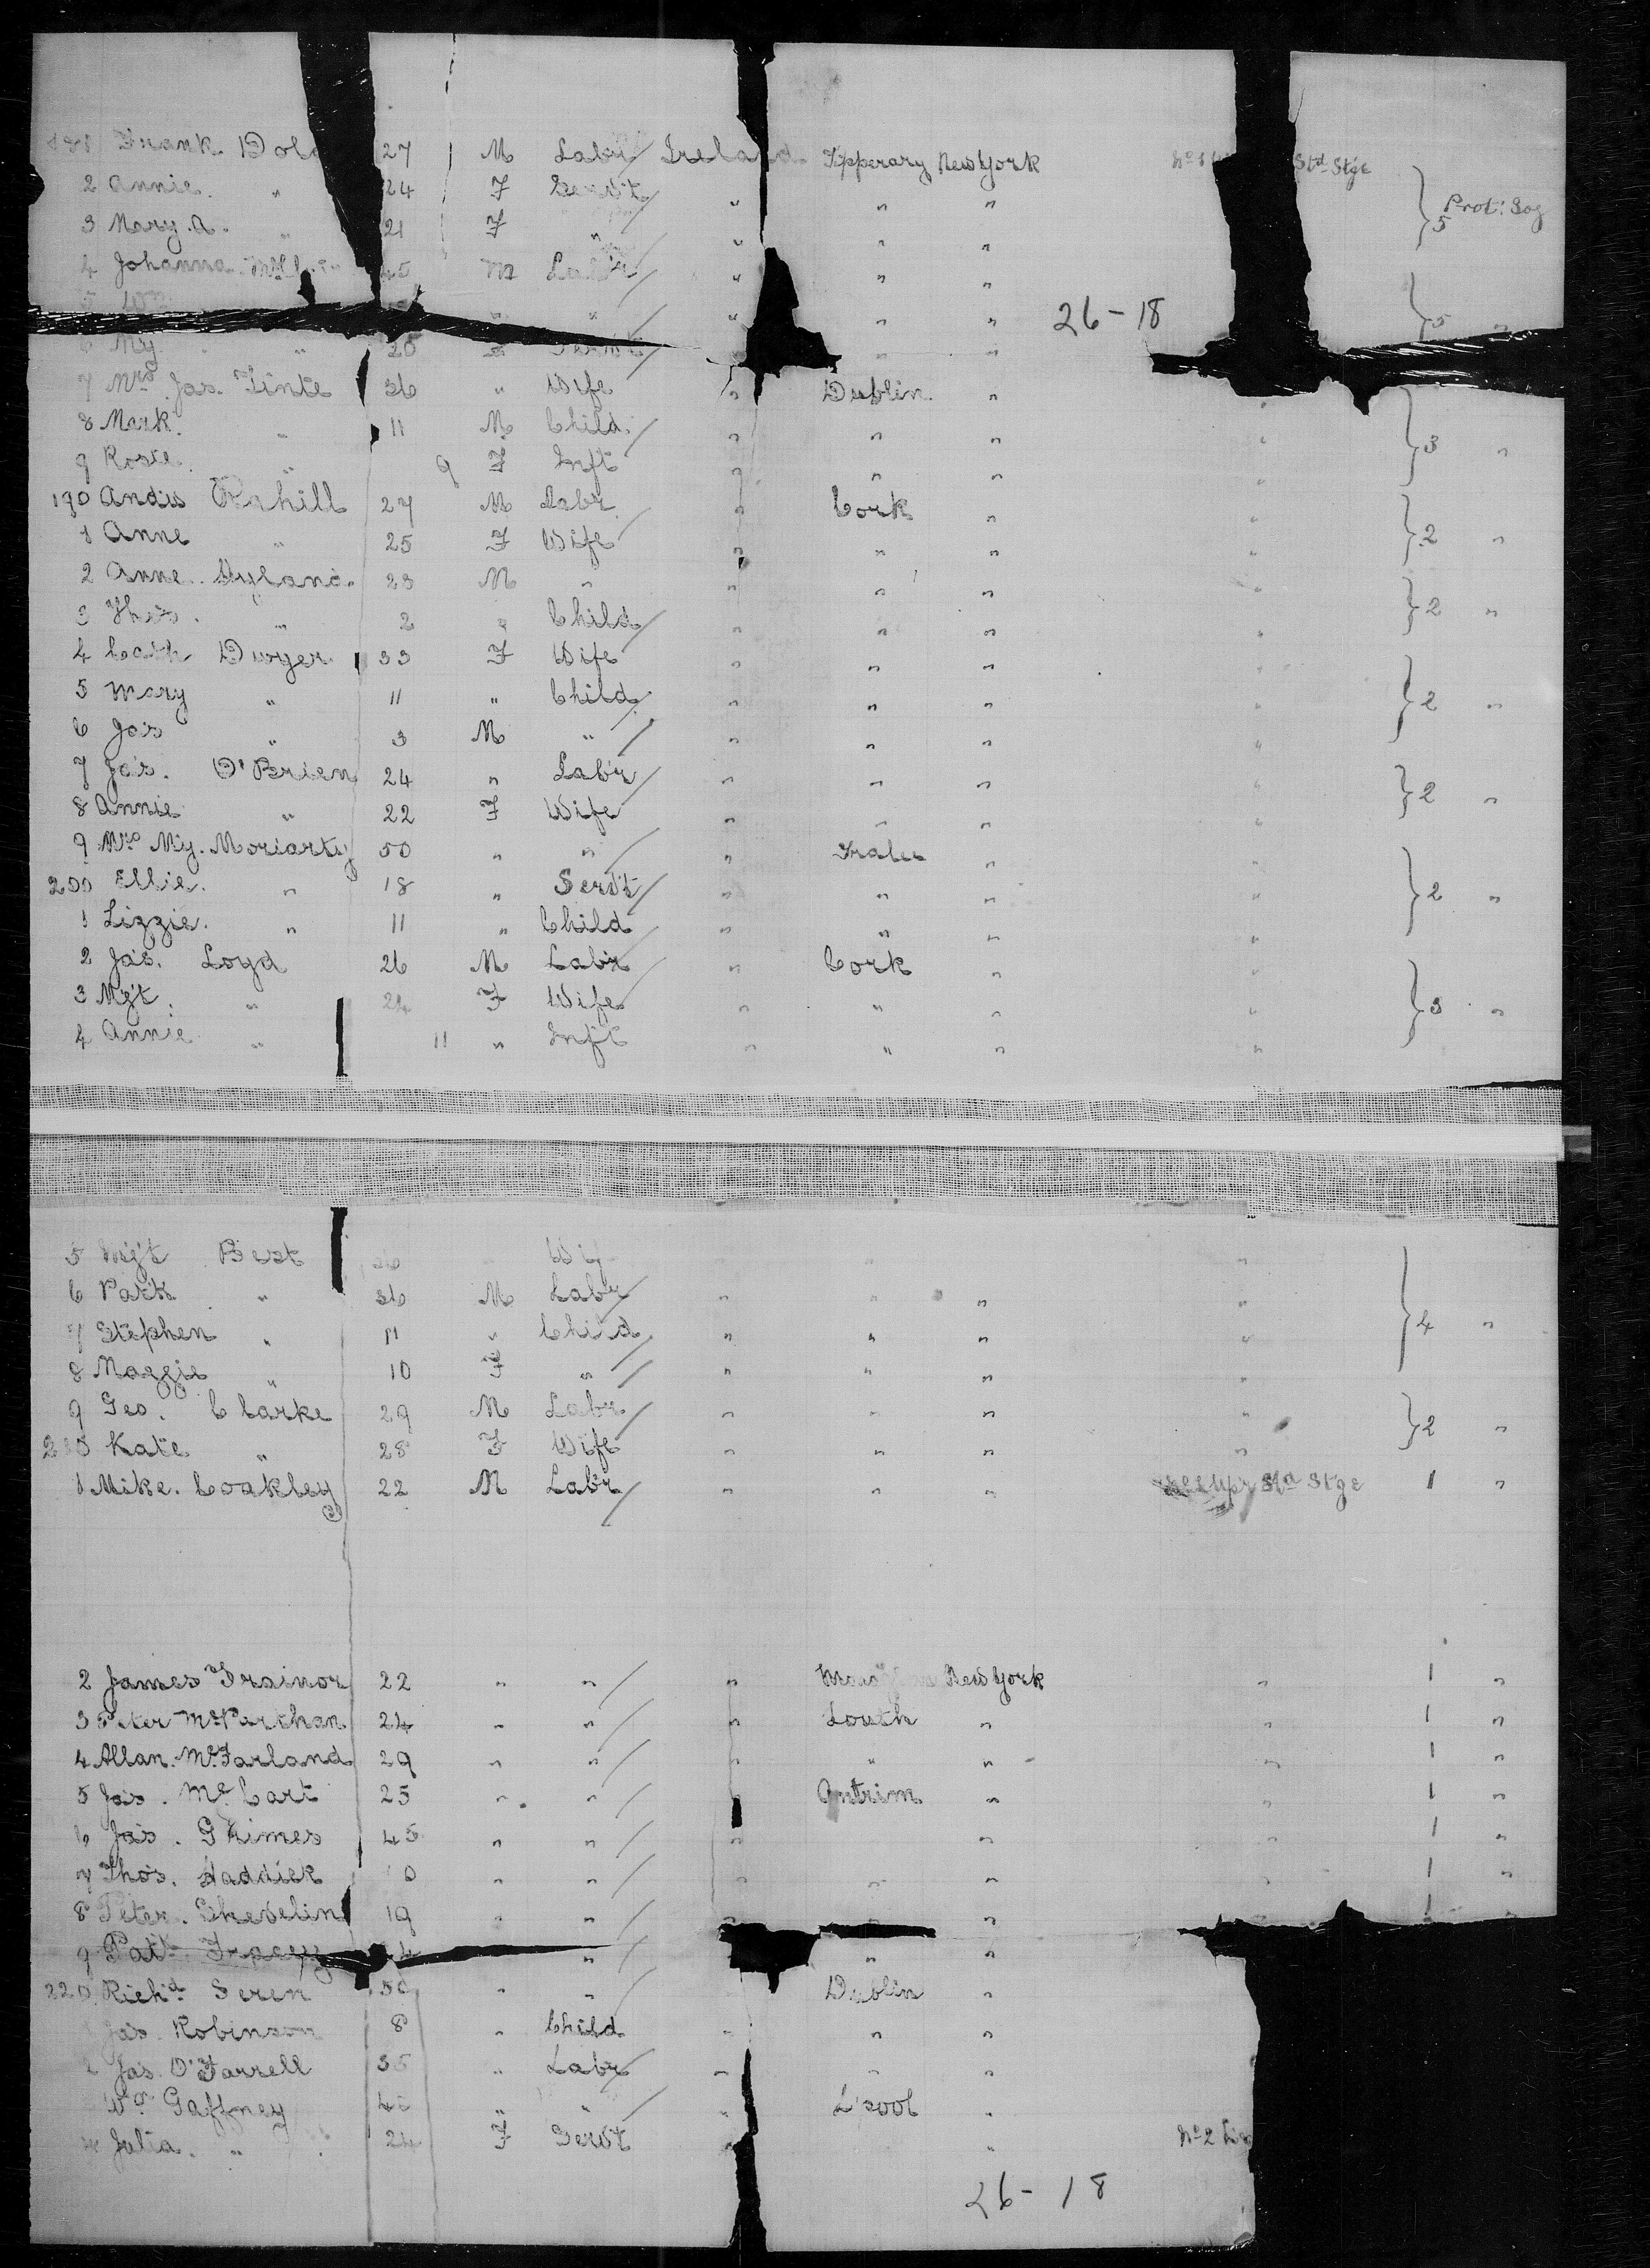 181 Frank Dol 27 M Labr Ireland Tipperary New York Std Stge
2 Annie. " 24 F Servt " " " } 5 Prot: Sog
3 Mary. A. " 21 F " " " "
4 Johanna 45 M Labr " " "
" " " " " 26-18 } 5 "
6 My. " 20 F Servt " "
7 Mrs Jas. Tinte 36 " Wife " Dublin "
8 Mark. " 11 M Child " " " " } 3 "
9 Rosie. " 9 F Inft " " " "
190 Andw Cahill 27 M Labr " Cork " "
1 Anne " 25 F Wife " " " " } 2 "
2 Anne. Hyland. 23 M " " " " " } 2 "
3 Thos. " 2 " Child " " " "
4 Cath Dwyer 33 F Wife " " " "
5 Mary " 11 " Child " " " " } 2 "
6 Jas " 3 M " " " " "
7 Jas. O'Brien 24 " Labr " " " "
8 Annie " 22 F Wife " " " " } 2 "
9 Mrs My. Moriarty 50 " " " Tralee "
200 Ellie. " 18 " Servt " " " " } 2 "
1 Lizzie. " 11 " Child " " " "
2 Jas. Loyd 26 M Labr " Cork " "
3 Mgt. " 24 F Wife " " " " } 3 "
4 Annie " 11 " Inft " " " "
5 Mgt Best 36 Wif " "
6 Patk " 36 M Labr " " " "
7 Stephen " 11 " Child " " " " } 4 "
8 Maggie " 10 F " " " " "
9 Geo. Clarke 29 M Labr " " " " } 2 "
210 Kate " 28 F Wife " " " "
1 Mike. Coakley 22 M Labr " " " Upr Std Stge 1 "
2 James Trainor 22 " " " New York " 1 "
3 Peter McParthan 24 " " " Louth " " 1 "
4 Allan. McFarland 29 " " " " " " 1 "
5 Jas. McCart 25 " " " Antrim " " 1 "
6 Jas. Grimes 45 " " " " " 1 "
7 Thos. Haddick 0 " " " " " " 1 "
8 Peter. Shevelin 19 " " " " " " 1 "
9 Patk Tracey 4 " " "
220 Richd Seren 50 " " Dublin "
Jas. Robinson 8 " Child " " "
2 Jas. O'Farrell 35 " Labr " " "
Wm Gaffney 4 " " " L'pool "
4 Julia. " 24 F Servt " " No 2
26-18